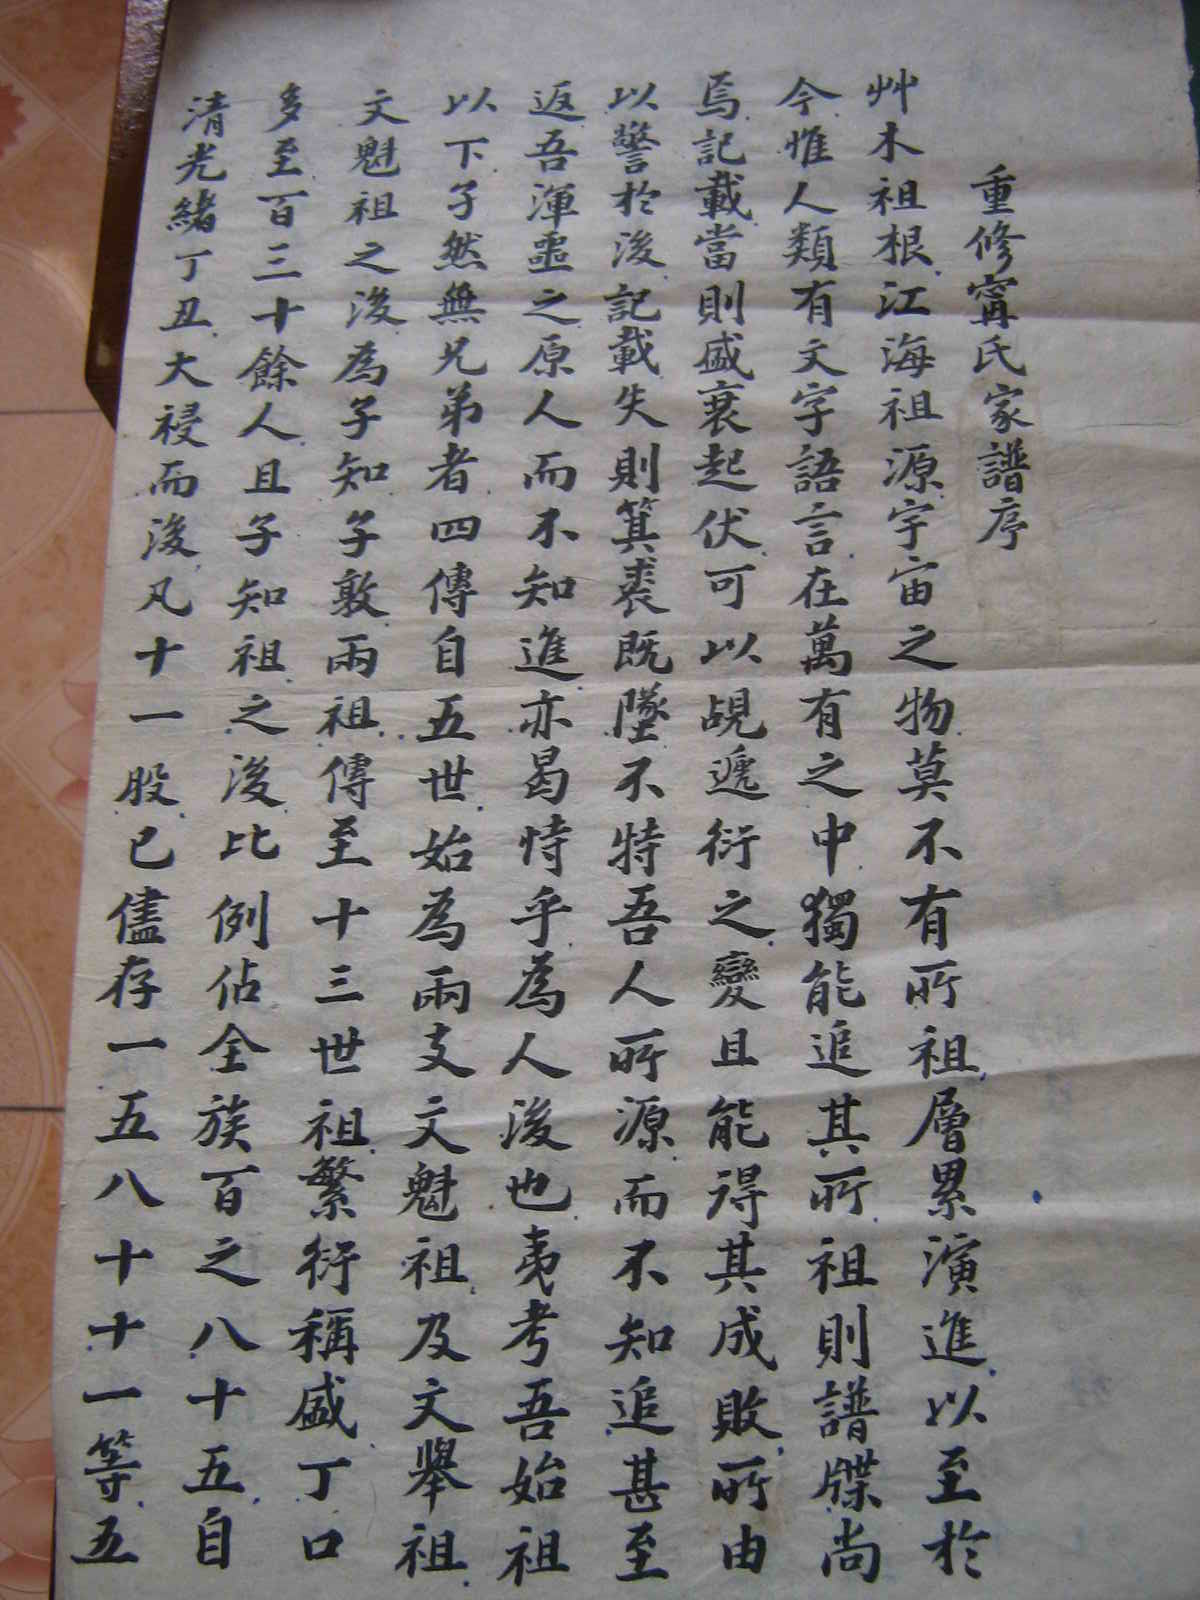 重修寗氏家譜序
艸木祖根江海祖源宇宙之物莫不有所祖層累演進以至於
今惟人類有文字語言在萬有之中獨能追其所祖則譜牒尚
焉記載當則盛衰起伏可以覘遞衍之變且能得其成敗所由
以警於後記載失則箕裘既墜不特吾人所源而不知追甚至
返吾渾噩之原人而不知進亦曷恃乎為人後也夷考吾始祖
以下孑然無兄弟者四傳自五世始為兩支文魁祖及文舉祖
文魁祖之後為子知子敦兩祖傳至十三世祖繁衍稱盛丁口
多至百三十餘人且子知祖之後比例佔全族百之八十五自
清光緒丁丑大祲而後凡十一股已儘存一五八十十一等五